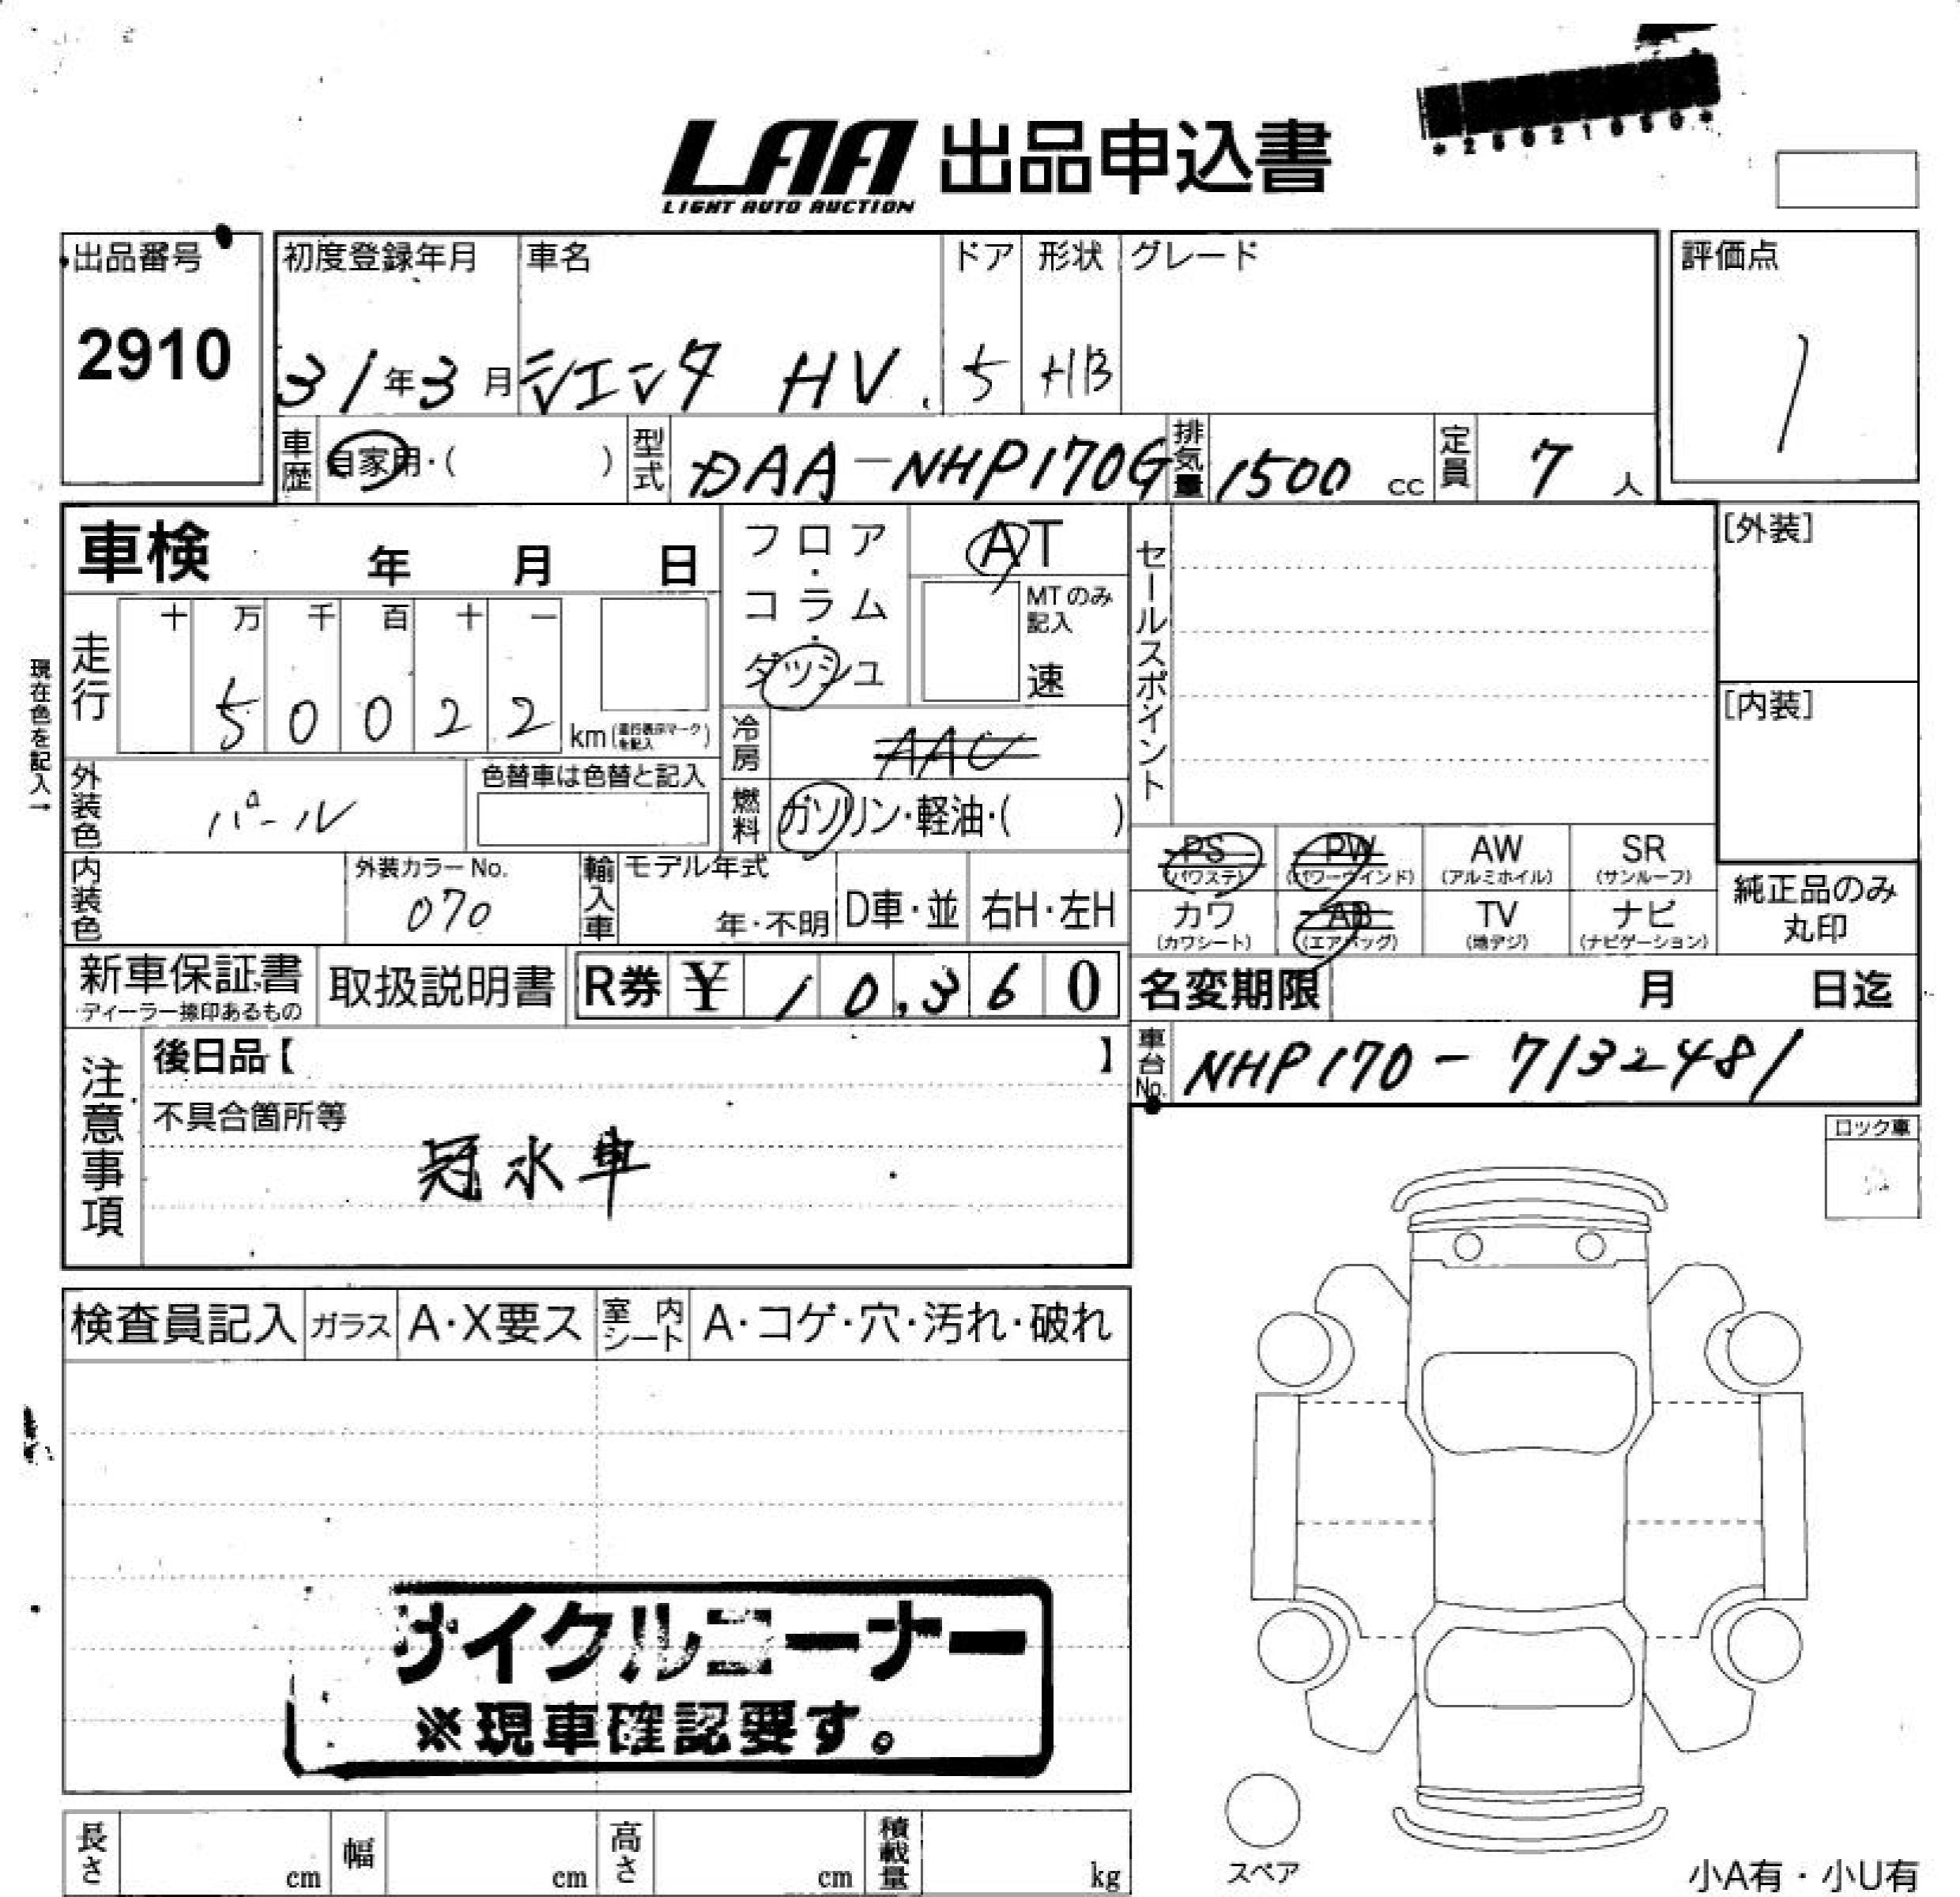 LAA 出品申込書
LIGHT AUTO AUCTION
出品番号
2910
初度登録年月
31年3月
車名
シエンタ HV
ドア
5
形状
HB
グレード
評価点
1
車歴
自家用・( )
型式
DAA-NHP170G
排気量
1500 cc
定員
7 人
車検 年 月 日
フロア・コラム・ダッシュ
AT
MTのみ記入
速
セールスポイント
[外装]
[内装]
現在色を記入→
走行
十 万 千 百 十 一
5 0 0 2 2
km (走行表示マークを記入)
冷房
AAC
外装色
パール
色替車は色替と記入
燃料
ガソリン・軽油・( )
PS (パワステ)
PW (パワーウインド)
AW (アルミホイル)
SR (サンルーフ)
カワ (カワシート)
AB (エアバッグ)
TV (地デジ)
ナビ (ナビゲーション)
純正品のみ丸印
内装色
外装カラーNo.
070
輸入車
モデル年式
年・不明
D車・並
右H・左H
新車保証書
ディーラー捺印あるもの
取扱説明書
R券 ¥ 10,360
名変期限 月 日迄
車台No.
NHP170-7132481
注意事項
後日品【 】
不具合箇所等
冠水車
ロック車
検査員記入
ガラス
A・X要ス
室内シート
A・コゲ・穴・汚れ・破れ
サイクルコーナー
※現車確認要す。
長さ cm
幅 cm
高さ cm
積載量 kg
スペア
小A有・小U有